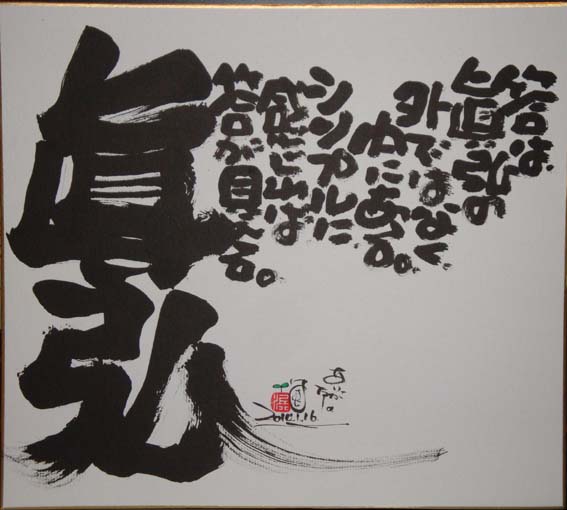 答は、
眞弘の
外ではなく
中にある。
シンプルに
感じれば
答が見える。
眞弘
2010.1.16